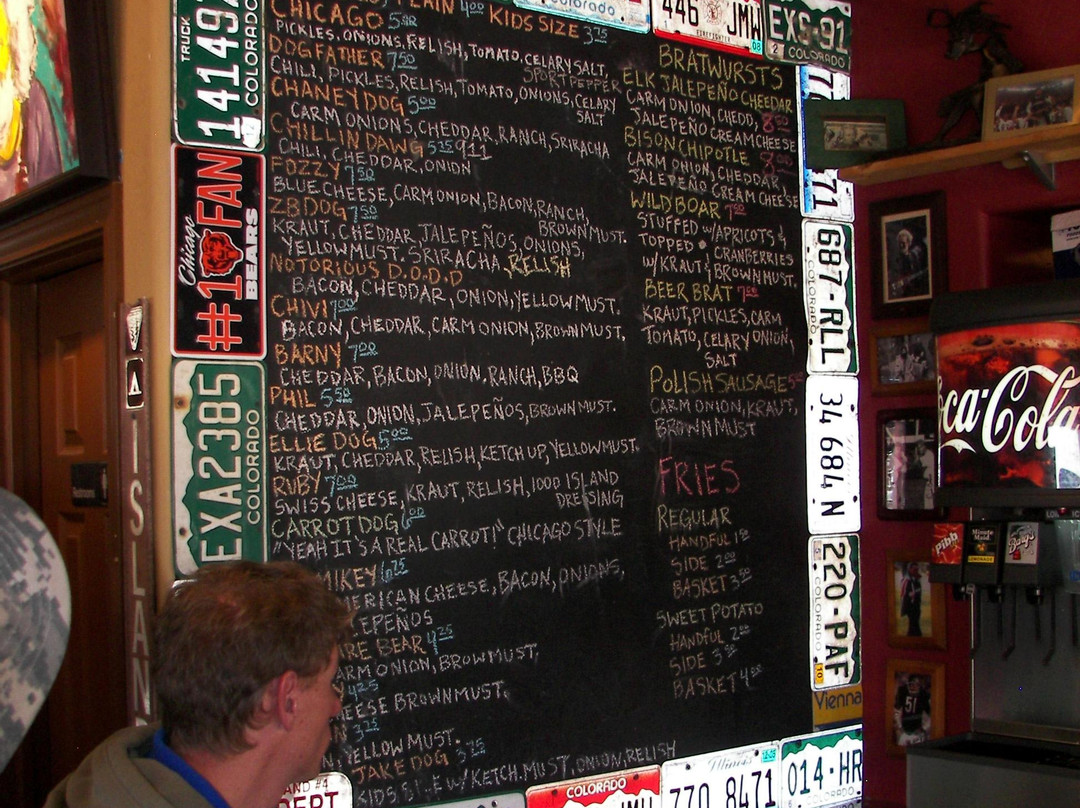 PLAIN 4.00 KIDS SIZE 3.75
CHICAGO 5.00
PICKLES, ONIONS, RELISH, TOMATO, CELARY SALT,
SPORT PEPPER
DOGFATHER 7.50
CHILI, PICKLES, RELISH, TOMATO, ONIONS, CELARY
SALT
CHANEY DOG 5.00
CARM ONIONS, CHEDDAR, RANCH, SRIRACHA
CHILLIN DAWG 5.25 911
CHILI, CHEDDAR, ONION
FOZZY 7.50
BLUE CHEESE, CARM ONION, BACON, RANCH,
BROWN MUST.
ZB DOG 7.50
KRAUT, CHEDDAR, JALEPEÑOS, ONIONS,
YELLOW MUST. SRIRACHA, RELISH
NOTORIOUS D.O.D.D
BACON, CHEDDAR, ONION, YELLOW MUST.
CHIVI 7.00
BACON, CHEDDAR, CARM ONION, BROWN MUST.
BARNY 7.00
CHEDDAR, BACON, ONION. RANCH, BBQ
PHIL 5.50
CHEDDAR, ONION, JALEPEÑOS, BROWN MUST.
ELLIE DOG 5.00
KRAUT, CHEDDAR, RELISH, KETCH UP, YELLOW MUST.
RUBY 7.00
SWISS CHEESE, KRAUT, RELISH, 1000 ISLAND
DRESSING
CARROT DOG 6.00
"YEAH IT'S A REAL CARROT!" CHICAGO STYLE
MIKEY 6.75
ERICAN CHEESE, BACON, ONIONS,
LEPEÑOS
RE BEAR 4.25
ARM ONION, BROW MUST.
4.25
EESE BROWN MUST.
3.75
YELLOW MUST.
JAKE DOG 3.75
KIDS W/ KETCH. MUST, ONION, RELISH
BRATWURSTS
ELK JALEPEÑO CHEDDAR
CARM ONION, CHEDD, 8.00
JALEPEÑO CREAM CHEESE
BISON CHIPOTLE 8.00
CARM ONION, CHEDDAR,
JALEPEÑO CREAM CHE'SE
WILD BOAR 7.50
STUFFED W/APRICOTS &
TOPPED CRANBERRIES
W/KRAUT & BROWN MUST.
BEER BRAT 7.00
KRAUT, PICKLES, CARM
TOMATO, CELARY ONION,
SALT
POLISH SAUSAGE
CARM ONION, KRAUT,
BROWN MUST
FRIES
REGULAR
HANDFUL
SIDE 2.00
BASKET 3.50
SWEET POTATO
HANDFUL
SIDE
BASKET
TRUCK
14149
COLORADO
Chicago
#1 FAN
BEARS
EXA2385
COLORADO
ISLAN
Colorado
446 JMW
08
EXS-91
COLORADO
71
687-RLL
COLORADO
34 684 N
220-PAF
COLORADO
10
Vienna
COLORADO
Illinois
770 8471
014-HR
ca-Cola
Pibb
Minute Maid
Barq's
51